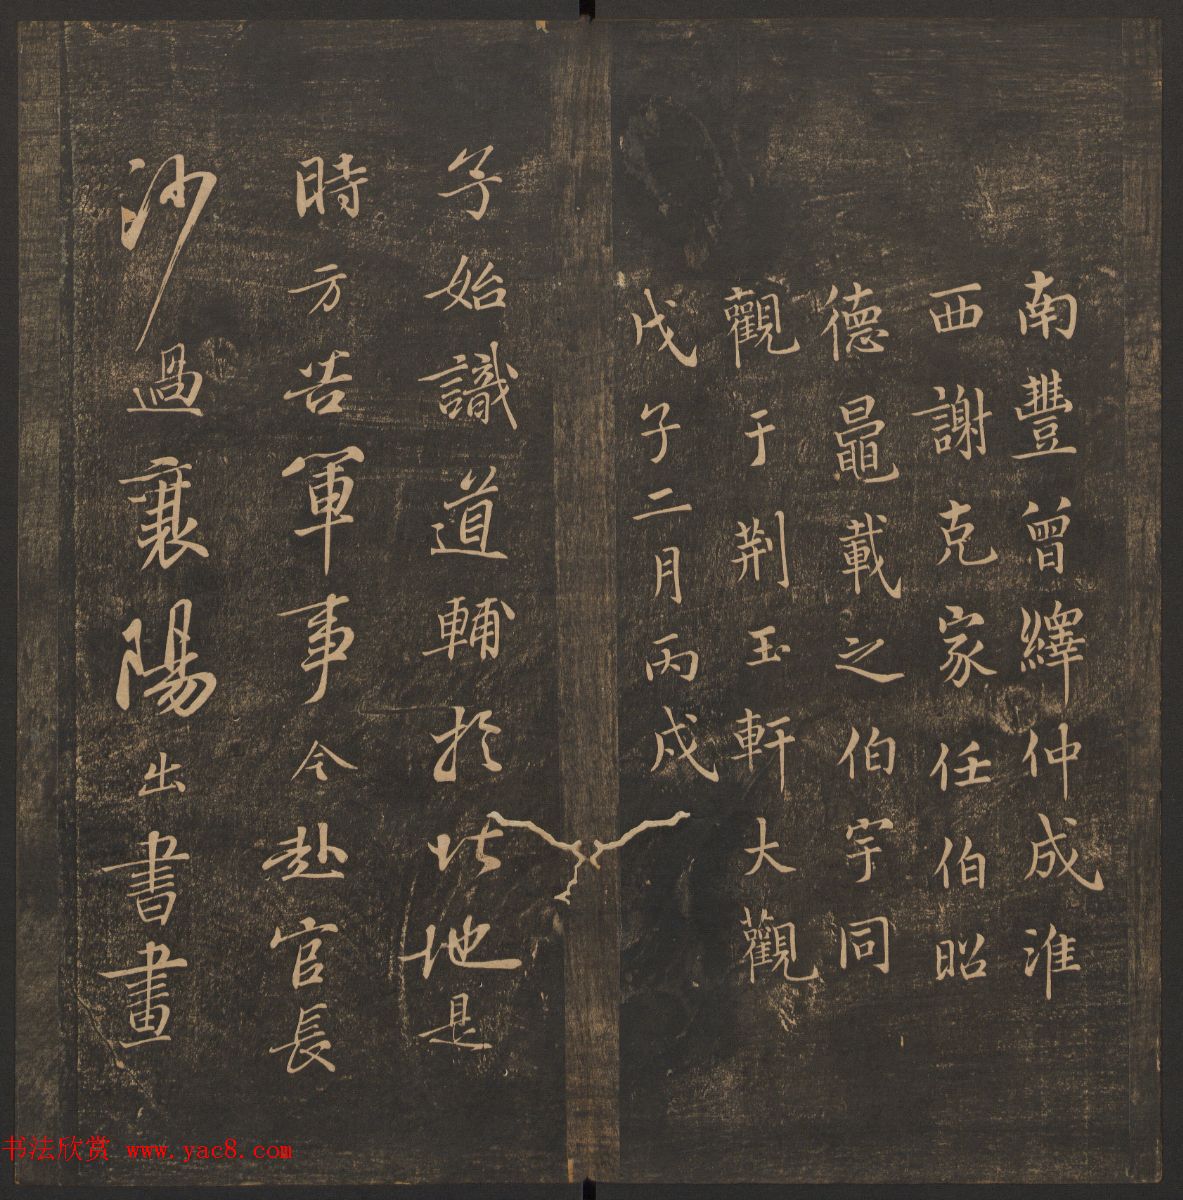 南豐曾繹仲成淮
西謝克家任伯昭
德鼂載之伯宇同
觀于荆玉軒大觀
戊子二月丙戌
子始識道輔於此地是
時方苦軍事今赴官長
沙過襄陽出書畫
书法欣赏 www.yac8.com